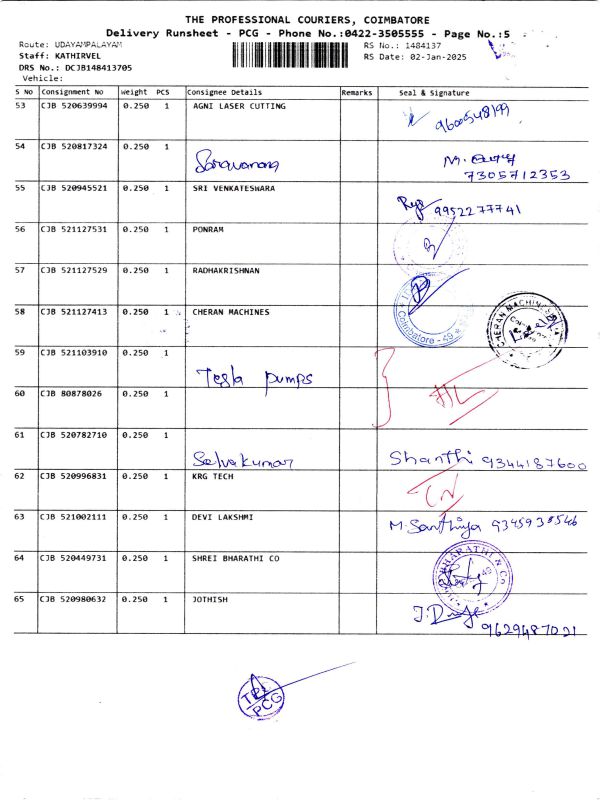 THE PROFESSIONAL COURIERS, COIMBATORE
Delivery Runsheet - PCG - Phone No.:0422-3505555 - Page No.:5
Route: UDAYAMPALAYAM RS No.: 1484137
Staff: KATHIRVEL RS Date: 02-Jan-2025
DRS No.: DCJB148413705
Vehicle:
S No Consignment No Weight PCS Consignee Details Remarks Seal & Signature
53 CJB 520639994 0.250 1 AGNI LASER CUTTING
9600548199
54 CJB 520817324 0.250 1
Saravanang M.
7305712353
55 CJB 520945521 0.250 1 SRI VENKATESWARA
9952277741
56 CJB 521127531 0.250 1 PONRAM
57 CJB 521127529 0.250 1 RADHAKRISHNAN
Coimbatore - 49
58 CJB 521127413 0.250 1 CHERAN MACHINES
CHERAN MACHINES
59 CJB 521103910 0.250 1
Tesla pumps
60 CJB 80878026 0.250 1
61 CJB 520782710 0.250 1
Selvakumar Shanthi 9344187600
62 CJB 520996831 0.250 1 KRG TECH
63 CJB 521002111 0.250 1 DEVI LAKSHMI
M. Santhiya 9345938546
64 CJB 520449731 0.250 1 SHREI BHARATHI CO
BHARATHI & Co
65 CJB 520980632 0.250 1 JOTHISH
9629487021
PCG